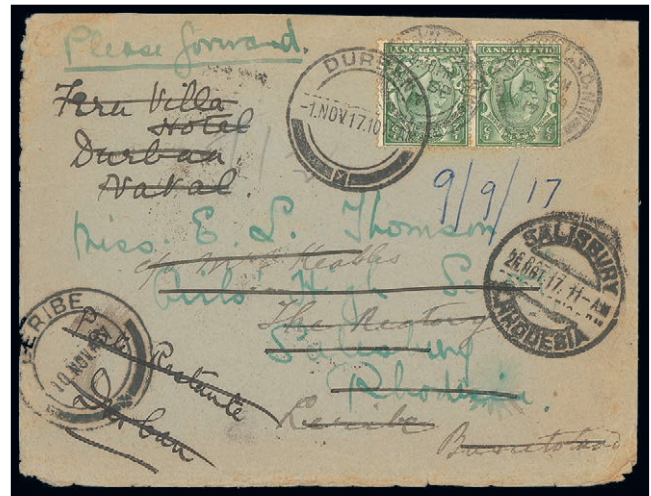 Please forward.
Fern Villa
Hotel
Durban
Natal.
DURBAN
-1.NOV17.10
9/9/17
Miss. E. L. Thomson
c/o Mrs Keables
Girls' High
The Rectory
Salisbury
Rhodesia.
Leribe
Basutoland
SALISBURY
26.OCT.17.11-AM
S.RHODESIA
LERIBE
10.NOV.17
P. O. Restante
Durban
HALFPENNY
HALFPENNY